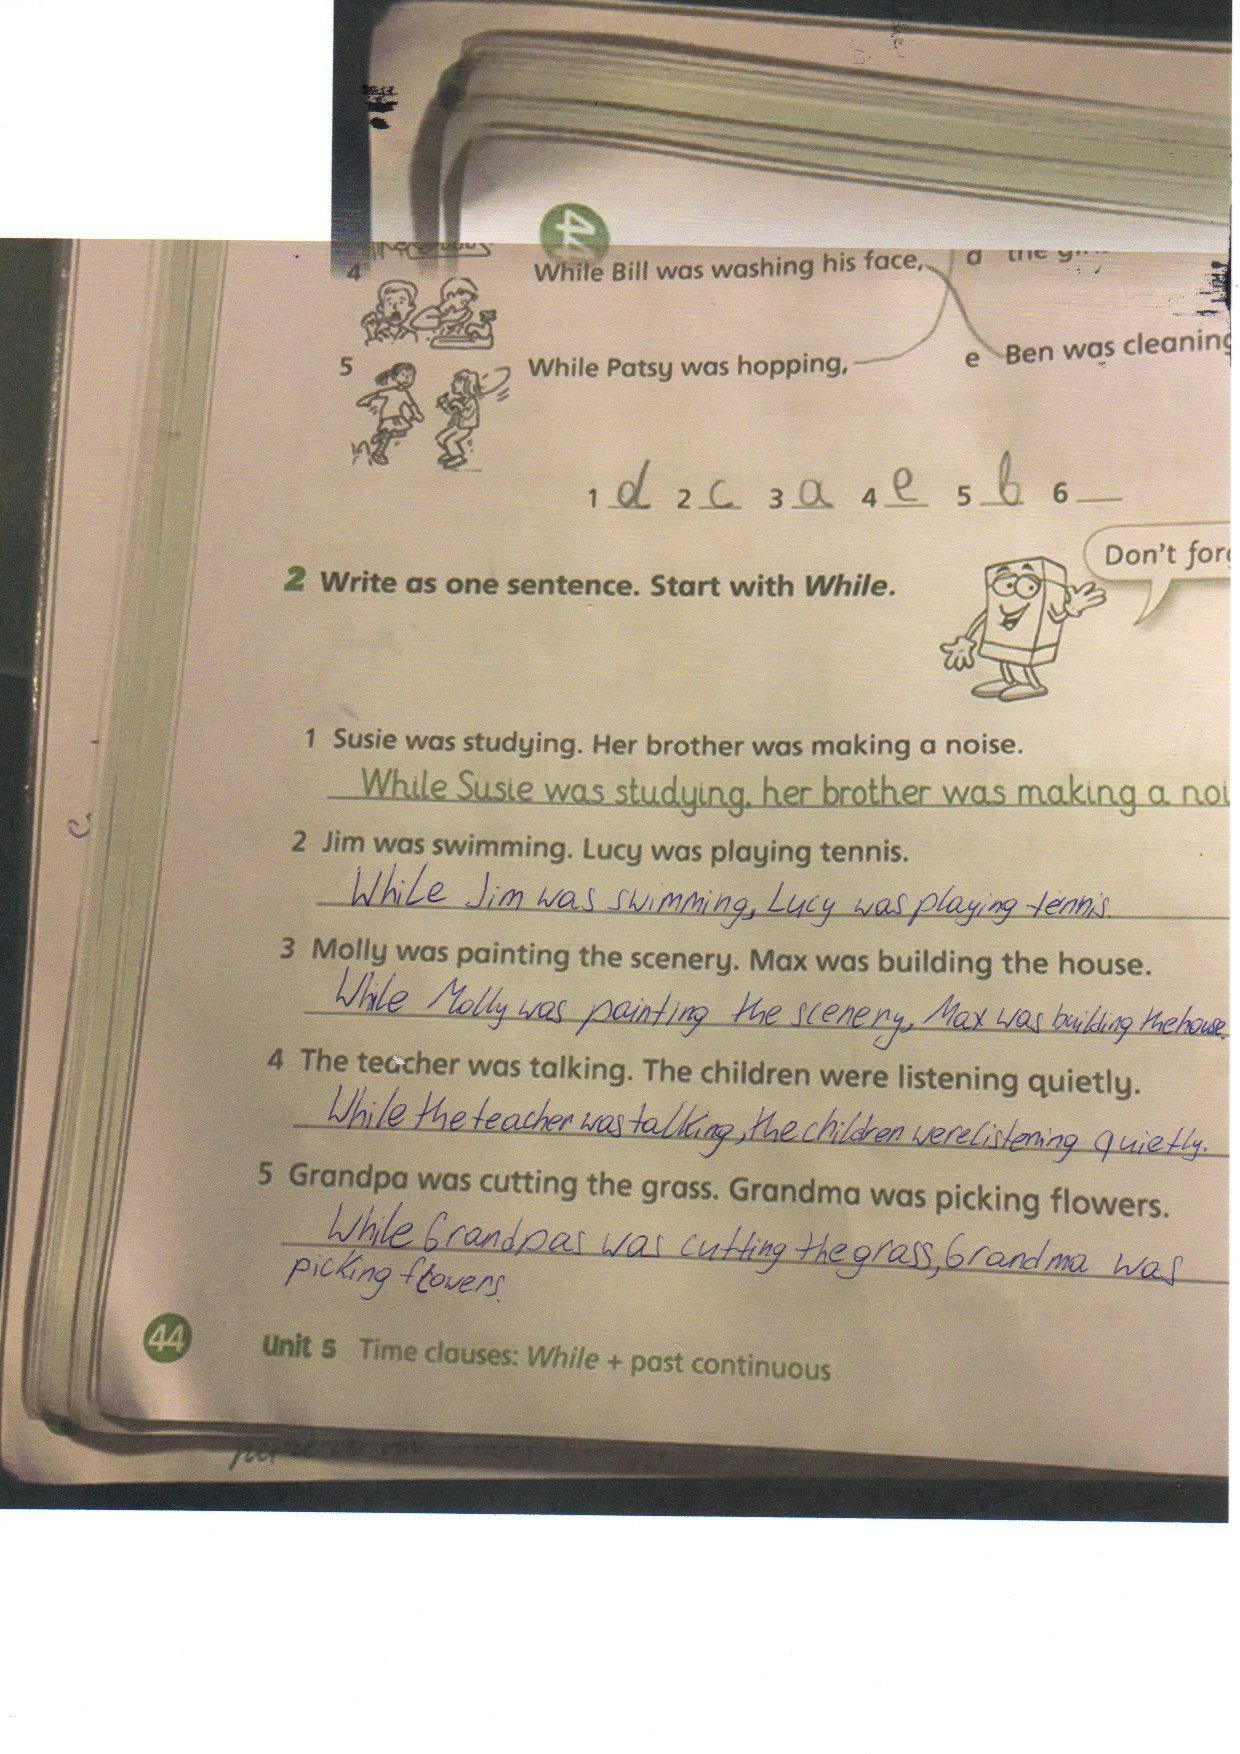 4
4 While Bill was washing his face, d the
e Ben was cleaning
5 While Patsy was hopping,
1 d 2 c 3 a 4 e 5 b 6
Don't for
2 Write as one sentence. Start with While.
1 Susie was studying. Her brother was making a noise.
While Susie was studying, her brother was making a noi
2 Jim was swimming. Lucy was playing tennis.
While Jim was swimming, Lucy was playing tennis.
3 Molly was painting the scenery. Max was building the house.
While Molly was painting the scenery, Max was building the house.
4 The teacher was talking. The children were listening quietly.
While the teacher was talking, the children were listening quietly.
5 Grandpa was cutting the grass. Grandma was picking flowers.
While Grandpas was cutting the grass, Grandma was
picking flowers.
44 Unit 5 Time clauses: While + past continuous